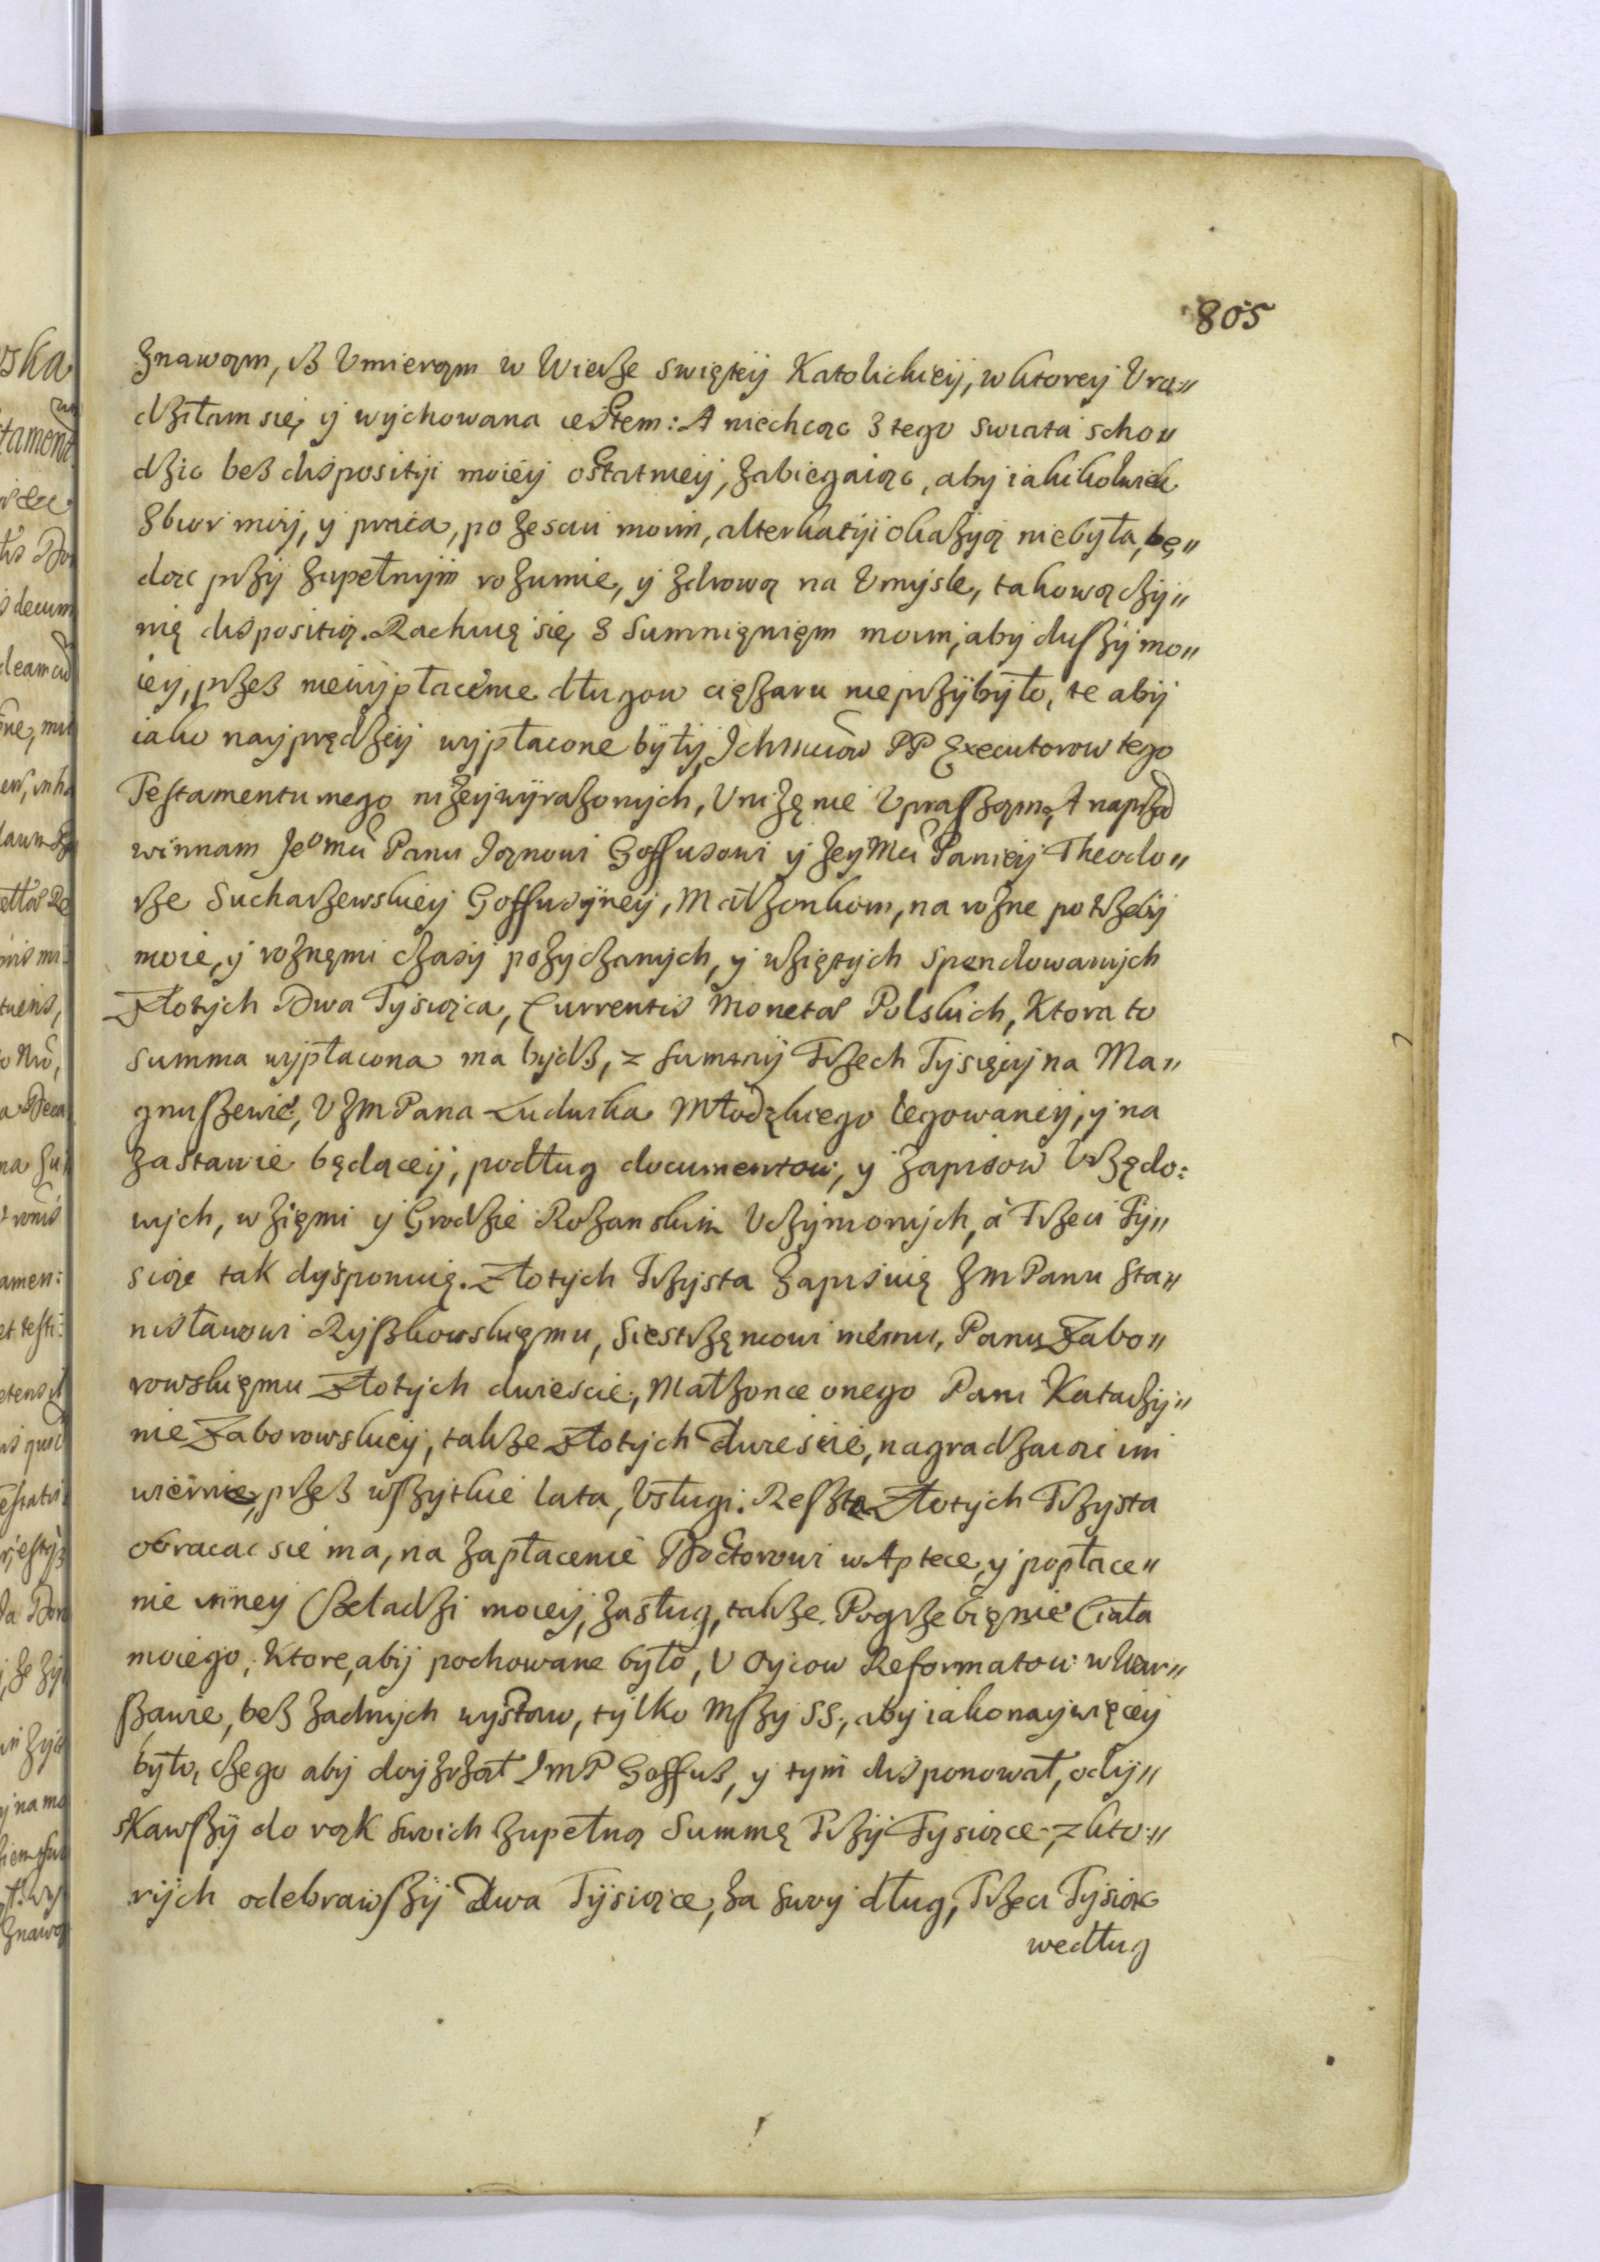 805
znawam, iż Vmieram w Wierze swiętey Katolickiey, w ktorey Vro„
dziłam się, y wychowana iestem: A niechcąc z tego swiata scho„
dzic bez disposityi moiey ostatniey, zabiegaiąc, aby iakikolwiek
zbior moy, y praca, po zesciu moim, alterkatyi okazyą niebyła, bę„
dąc przy zupełnym rozumie, y zdrową na Vmysle, takową czy„
nię dispositią. Rachuię się, z Sumnięnięm moim, aby duszy mo„
iey, przez niewypłacenie długow cięzaru nieprzybyło, te aby
iako nayprędzey wypłacone były, Ichmciow PP Executorow tego
Testamentu mego nizey wyrazonych, Vnizęnie Vpraszam, A naprzod
winnam Jeomci Panu Janowi Goffusowi y Jey Mci Paniey Theodo„
rze Sucharzewskiey Goffusowney, Małzonkom, na rozne potrzeby
moie, y roznęmi czasy pozyczanych, y wziętych spendowanych
Złotych Dwa Tysiąca, Currentis Monetæ Polskich, Ktora to
summa wypłacona ma bydz, z summy Trzech Tysięcy na Ma„
gnuszewie, V Jm Pana Ludwika Młodzkiego legowaney, y na
zastawie będącey, podług documentow, y zapisow Vrzędo:
wych, w zięmi y Grodzie Rozanskim Vczynionych, à Trzeci Ty„
siąc tak dysponuię. Złotych Trzysta zapisuię Jm Panu Sta„
nisławowi Ryszkowskięmu, Siestrzęncowi mémú, Panu Zabo„
rowskięmu Złotych dwiescie, Małzonce onego Pani Katarzy„
nie Zaborowskiey, takze Złotych dwiescie, nagradzaiąc im
wiérnie, przez wszytkie lata, Vsługi. Reszta Złotych Trzysta
obracac się ma, na zapłacenie Doctorowi w Aptece, y popłace„
nie inney Czeladzi moiey, zasług, takze Pogrzebięnie Ciała
moiego, Ktore, aby pochowane było, V Oycow Reformatow w War„
szawie, bez zadnych wystaw, tylko Mszy SS., aby iako naywięcey
było, czego aby doyzrzał JmP Goffus, y tym disponował, ody„
skawszy do rąk swoich zupełną Summę Trzy Tysiące, z kto:„
rych odebrawszy Dwa Tysiące, za swoy dług, Trzeci Tysiąc
według